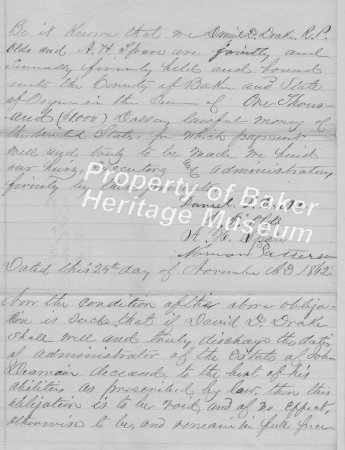 Be it Known that we Daniel D. Drake R. P.
Olds and A. H. Spare are jointly and
Severally firmly held and bound
unto the County of Baker and State
of Oregon in the Sum of One Thous-
and ($1000) Dollars lawful money of
the United States, for which payment
well and truly to be made we bind
our heirs, executors and administrators
firmly by these
Daniel D. Drake
R. P. Olds
A. H. Spare
Property of Baker
Heritage Museum
Dated this 24th day of November AD 1862
Now the condition of this above obliga-
tion is such that if David D. Drake
Shall well and truly discharge the duties
of administrator of the Estate of John
deceased to the best of his
abilities as prescribed by law, then this
obligation is to be void and of no effect,
otherwise to be and remain in full force